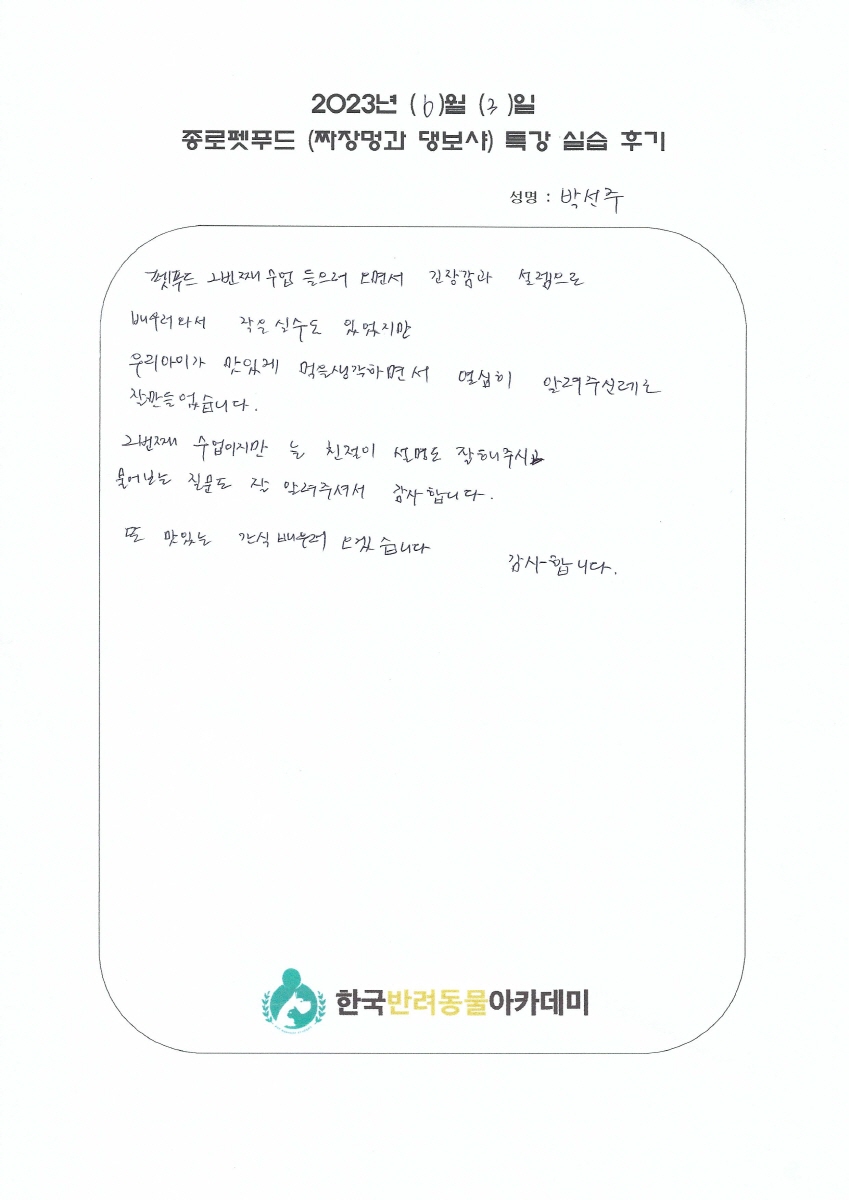 2023년 (6)월 (3)일
종로펫푸드 (짜장멍과 댕보샤) 특강 실습 후기
성명 : 박선주
펫푸드 2번째 수업 들으러 오면서 긴장감과 설렘으로
배우러 와서 작은 실수도 있었지만
우리아이가 맛있게 먹을생각하면서 열심히 알려주신데로
잘만들었습니다.
2번째 수업이지만 늘 친절이 설명도 잘해주시고
물어보는 질문도 잘 알려주셔서 감사합니다.
또 맛있는 간식 배우러 오겠습니다
감사합니다.
한국반려동물아카데미